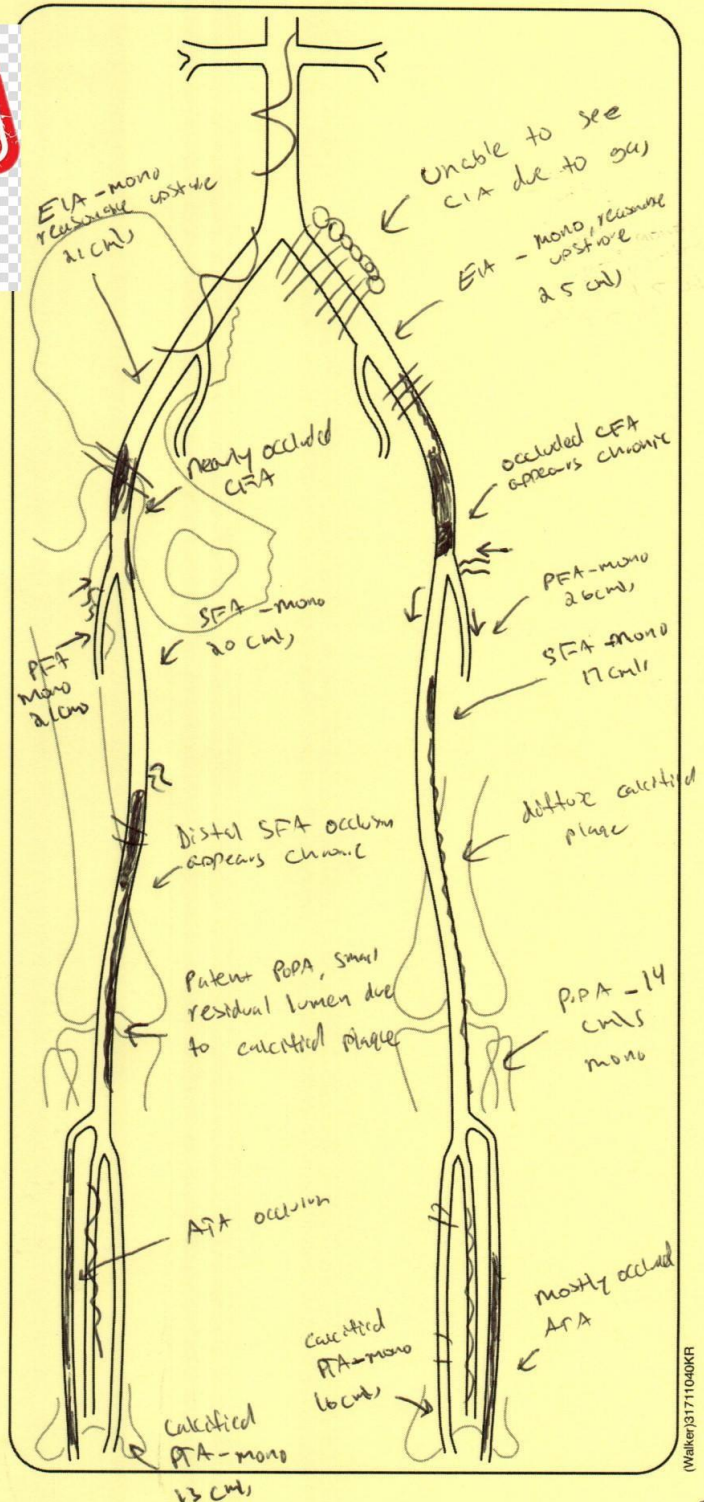 Unable to see
CIA due to gas
EIA - mono
reasonable upstroke
21 cm/s
EIA - mono, reasonable
upstroke
25 cm/s
nearly occluded
CFA
occluded CFA
appears chronic
PFA
mono
21 cm/s
SFA - mono
20 cm/s
PFA - mono
26 cm/s
SFA - mono
17 cm/s
Distal SFA occlusion
appears chronic
diffuse calcified
plaque
Patent PopA, small
residual lumen due
to calcified plaque
PopA - 14
cm/s
mono
ATA occlusion
mostly occluded
ATA
calcified
PTA - mono
16 cm/s
calcified
PTA - mono
13 cm/s
(Walker)31711040KR